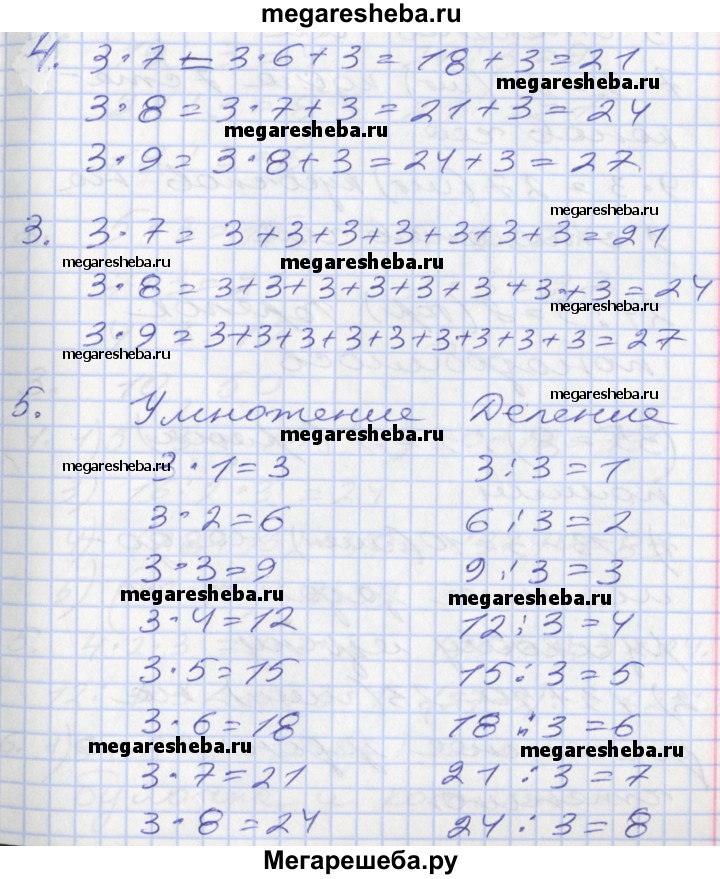 megaresheba.ru
4. 3·7 = 3·6+3 = 18+3 = 21
megaresheba.ru
3·8 = 3·7+3 = 21+3 = 24
megaresheba.ru
3·9 = 3·8+3 = 24+3 = 27
megaresheba.ru
3. 3·7 = 3+3+3+3+3+3+3 = 21
megaresheba.ru megaresheba.ru
3·8 = 3+3+3+3+3+3+3+3 = 24
megaresheba.ru
3·9 = 3+3+3+3+3+3+3+3+3 = 27
megaresheba.ru
megaresheba.ru
5. Умножение Деление
megaresheba.ru
megaresheba.ru 3·1=3 3:3=1
3·2=6 6:3=2
3·3=9 9:3=3
megaresheba.ru megaresheba.ru
3·4=12 12:3=4
3·5=15 15:3=5
3·6=18 18:3=6
megaresheba.ru megaresheba.ru
3·7=21 21:3=7
3·8=24 24:3=8
Мегарешеба.ру